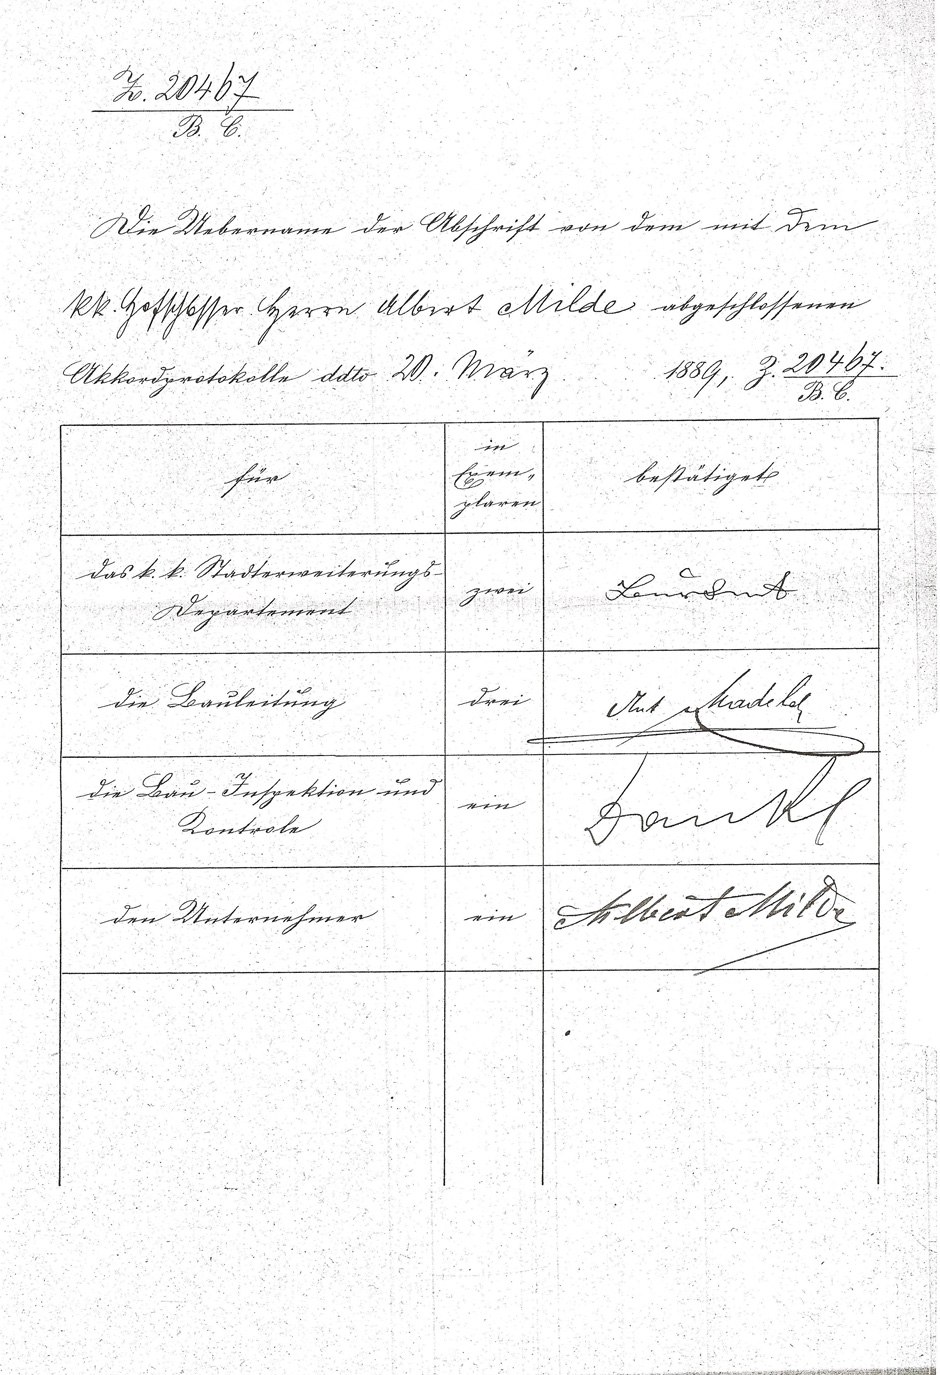 Z. 20467
B. C.
Die Uebername der Abschrift von dem mit dem
kk. Hofschlosser Herrn Albert Milde abgeschlossenen
Akkordprotokolle ddto 20. März 1889, Z. 20467.
B. C.
für
in
Exem-
plaren
bestätiget
das k. k. Stadterweiterungs-
Departement
zwei
die Bauleitung
drei
die Bau-Inspektion und
Kontrole
ein
Dankl
den Unternehmer
ein
Albert Milde